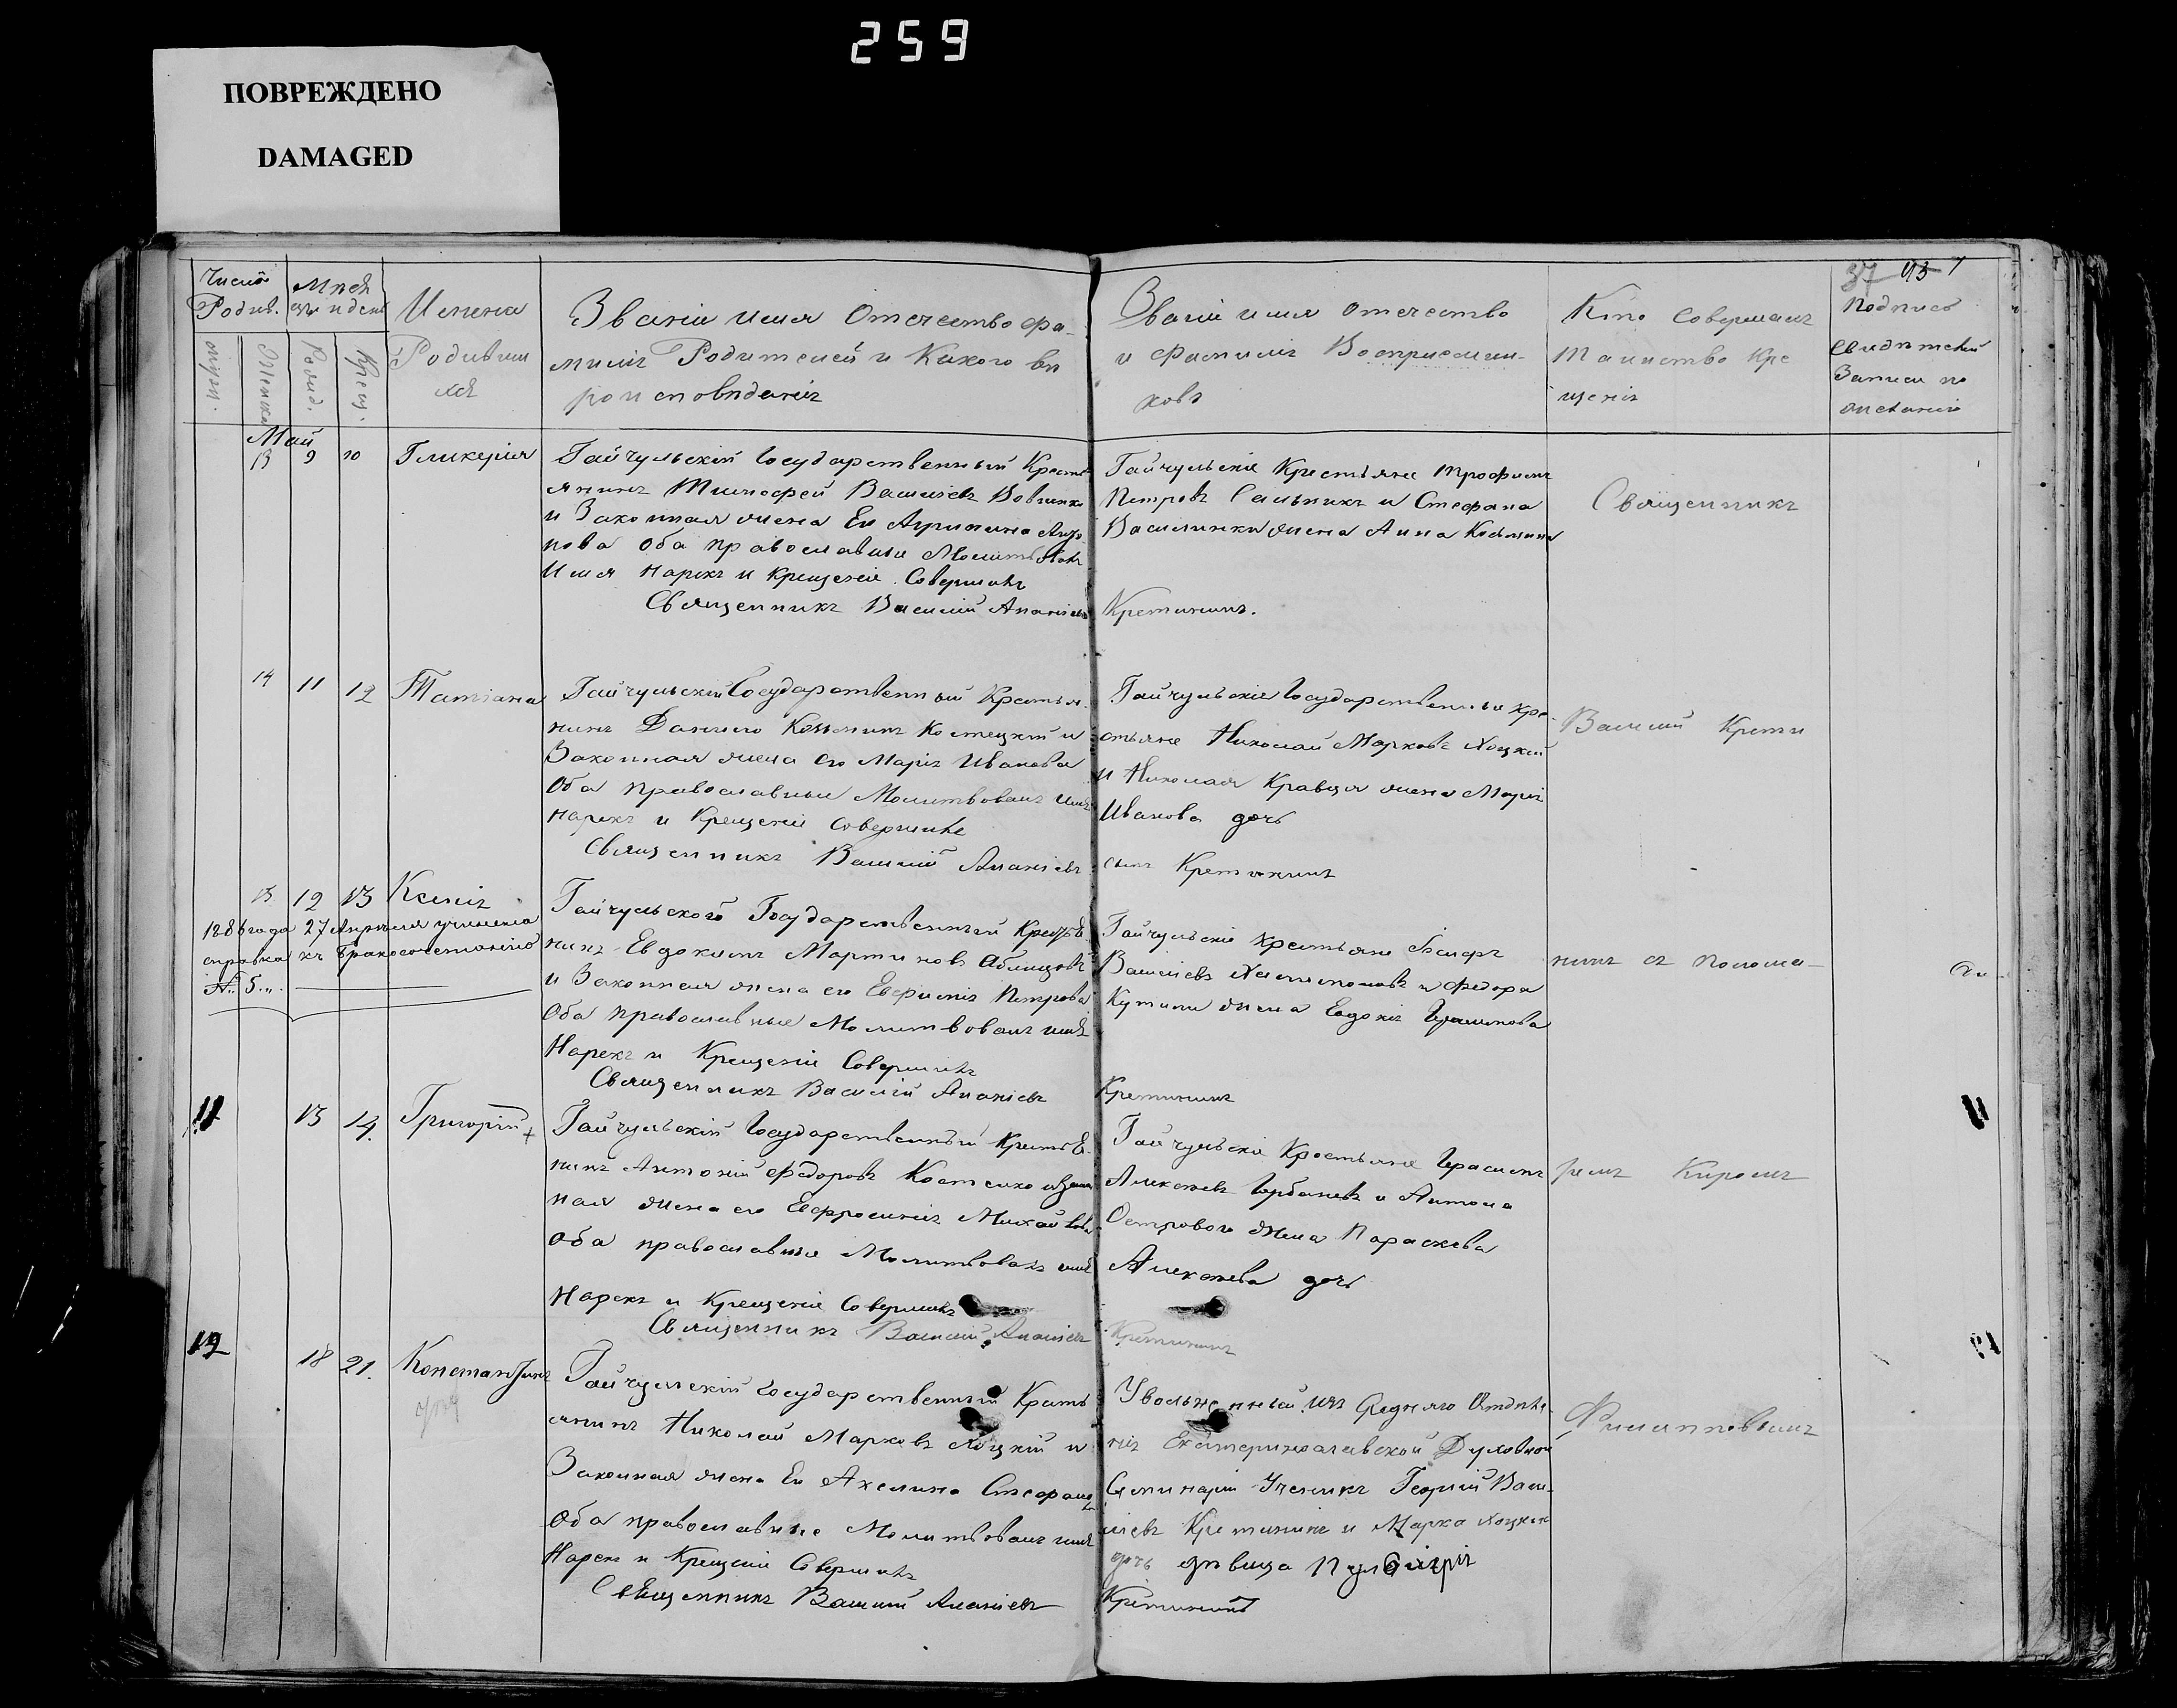 259
ПОВРЕЖДЕНО
DAMAGED
37 43
Число Родив.
Мѣся и день
Имена Родивши
Званіе имя Отечество фа-
миліи Родителей и Какого вѣ
роисповѣданія
Званіе имя отечество
и фамилія Воспріемни-
ковъ
Кто Совершалъ
Таинство Кре
щенія
Подпись
свидѣтелей
Записи по
Май
13 9 10 Гликерія
Гайчульскій Государственный Кресть
янинъ Тимофей Васильевъ
и Законная жена Ег Агрипина
нова Оба православные
Имя Нарекъ и Крещеніе Совершилъ
Священникъ Василій Ананіевъ
Гайчульскіе Крестьяне Трофимъ
Петровъ Сальникъ и Стефана
Василинки жена Анна
Кретининъ.
Священникъ
14 11 12 Татіана
Гайчульскій Государственный Крестья
нинъ Данило Костецкій и
Законная жена его Марія Иванова
Оба православные Молитвовалъ имя
нарекъ и Крещеніе Совершилъ
Священникъ Василій Ананіевъ
Гайчульскіе Государственные Кре-
стьяне Николай Марковъ Хоцкій
и Николая Кравця жена Марія
Иванова дочь
сынъ Кретининъ
Василій Крети
15 12 13 Ксенія
1886 года 27 Апрѣля учинена
справка къ Бракосочетанію
№ 5
Гайчульского Государственный Кресть
нинъ Евдокимъ Мартиновъ
и Законная жена его Евфимія Петрова
Оба православные Молитвовалъ имя
Нарекъ и Крещеніе Совершилъ
Священникъ Василій Ананіевъ
Гайчульскіе Крестьяне
Васильевъ и Федора
жена Евдокія
Кретининъ
нинъ съ понома-
11 13 14 Григорій
Гайчульскій Государственный Кресть
нинъ Антоній Федоровъ Костенко
ная жена его Евфросинія Михайлова
Оба православные Молитвовалъ имя
Нарекъ и Крещеніе Совершилъ
Священникъ Василій Ананіевъ
Гайчульскіе Крестьяне Герасимъ
Алексѣевъ Горбаневъ и Антона
Острового жена Параскева
Алексѣева дочь
Кретининъ
ремъ Киромъ
12 18 21. Константинъ
Гайчульскій Государственный Кресть
янинъ Николай Марковъ Хоцкій и
Законная жена Ег Акелина Стефанова
Оба православные Молитвовалъ имя
Нарекъ и Крещеніе Совершилъ
Священникъ Василій Ананіевъ
Уволенный изъ Средняго Отдѣле-
нія Екатеринославской Духовной
Семинаріи Ученикъ Георгій Васи-
ліевъ Кретининъ и Марка Хоцкаго
дочь дѣвица
Кретининъ
Филипповымъ